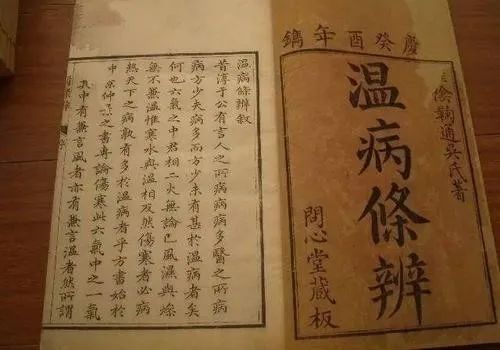 慶癸酉年鐫
陰鞠通吳氏著
温病條辨
問心堂藏板
温病條辨叙
昔淳于公有言人之所病病病多醫之所病
病方少夫病多而方少未有甚於温病者矣
何也六氣之中君相二火無論已風濕與燥
無不兼温惟寒水與温相反然傷寒者必病
熱天下之病孰有多於温病者乎方書始於
仲之書專論傷寒此六氣中之一氣
其中有兼言風者亦有兼言温者然所謂